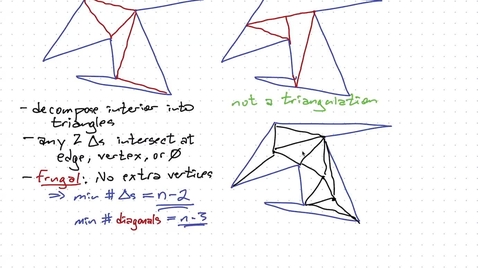 - decompose interior into
triangles
- any 2 Δs intersect at
edge, vertex, or ∅
- frugal: No extra vertices
⇒ min # Δs = n-2
min # diagonals = n-3
not a triangulation